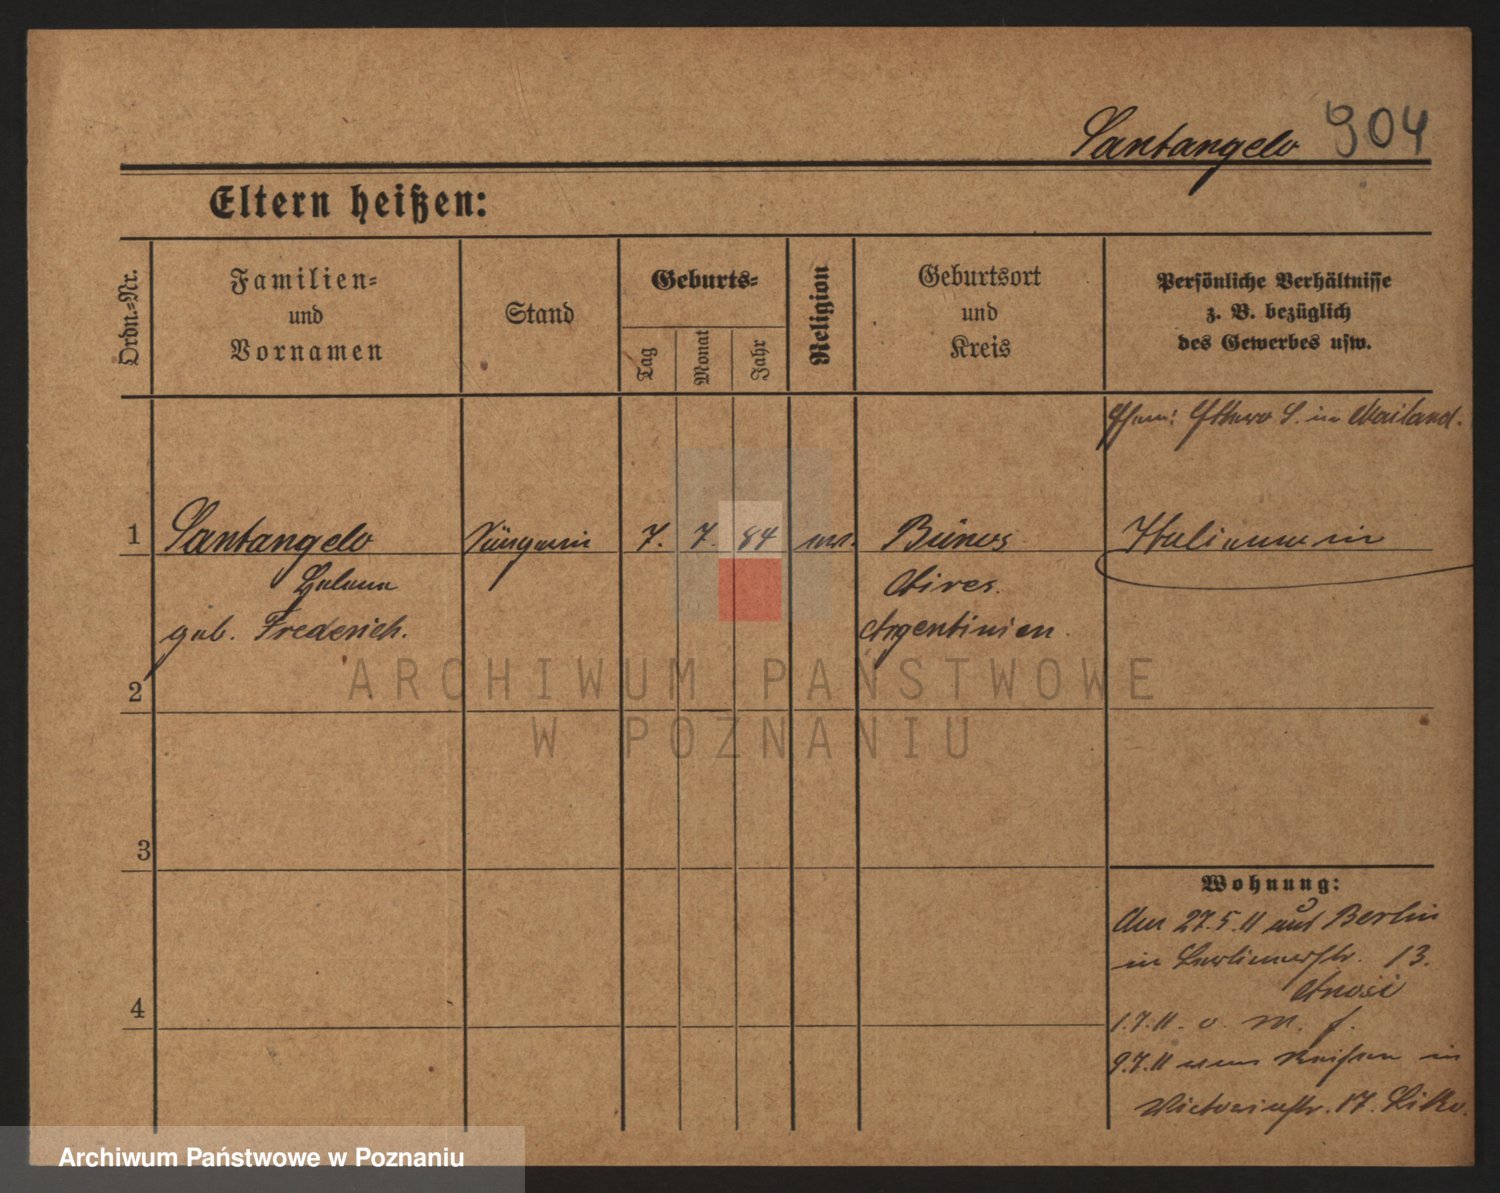 Santangelo 904
Eltern heißen:
Ordn.-Nr.
Familien-
und
Vornamen
Stand
Geburts-
Tag
Monat
Jahr
Religion
Geburtsort
und
Kreis
Persönliche Verhältnisse
z. B. bezüglich
des Gewerbes usw.
S. in Mailand.
1 Santangelo Sängerin 7. 7. 84 Búnos Italienerin
Helene Aires.
geb. Frederich. Argentinien.
2
3
4
Wohnung:
Am 27.5.11 aus Berlin
in Berlinerstr. 13.
1.7.11. v. m. f.
9.7.11 von Reisen in
Victoriastr. 17.
ARCHIWUM PAŃSTWOWE
W POZNANIU
Archiwum Państwowe w Poznaniu